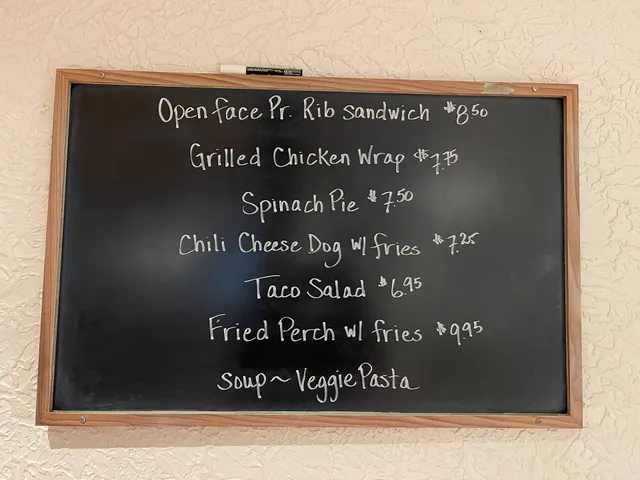 Open face Pr. Rib sandwich $8.50
Grilled Chicken Wrap $7.75
Spinach Pie $7.50
Chili Cheese Dog w/ fries $7.25
Taco Salad $6.95
Fried Perch w/ fries $9.95
soup ~ Veggie Pasta